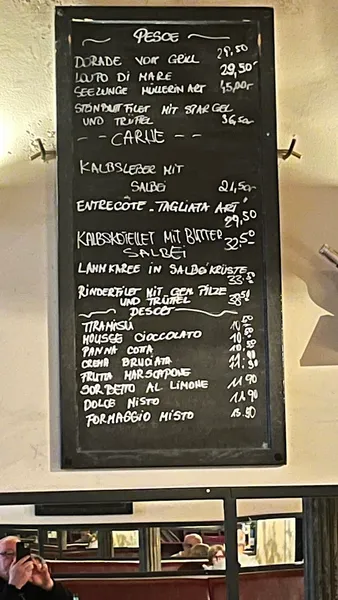 PESCE
DORADE VOM GRILL 29,50
LOUPO DI MARE 29,50
SEEZUNGE MÜLLERIN ART 45,00
STEINBUTTFILET MIT SPARGEL
UND TRÜFFEL 36,50
- - CARNE - -
KALBSLEBER MIT
SALBEI 21,50
ENTRECÔTE "TAGLIATA ART"
29,50
KALBSKOTELLET MIT BUTTER
SALBEI 32,50
LAMMKAREE IN SALBEIKRUSTE
33,50
RINDERFILET MIT GEM. PILZE
UND TRÜFFEL 38,50
DESCET
TIRAMISU 10,50
MOUSSE CIOCCOLATO 10,50
PANNA COTTA 10,50
CREMA BRUCIATA 11,90
FRUTTA MARSCAPONE
SORBETTO AL LIMONE 11,90
DOLCE MISTO 11,90
FORMAGGIO MISTO 13,90